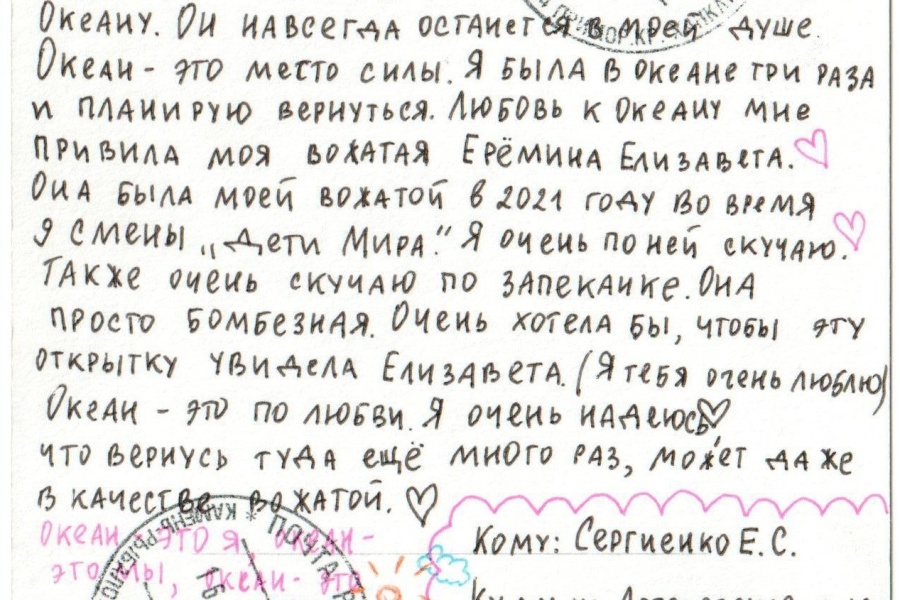 Океану. Он навсегда останется в моей душе.
Океан - это место силы. Я была в океане три раза
и планирую вернуться. Любовь к Океану мне
привила моя вожатая Ерёмина Елизавета.
Она была моей вожатой в 2021 году во время
я смены „Дети Мира". Я очень по ней скучаю.
Также очень скучаю по запеканке. Она
просто бомбезная. Очень хотела бы, чтобы эту
открытку увидела Елизавета. (Я тебя очень люблю)
Океан - это по любви. Я очень надеюсь,
что вернусь туда ещё много раз, может даже
в качестве вожатой.
Океан - это я, океан -
это мы, океан - это
Кому: Сергиенко Е.С.
ПОЧТА
КАМЕНЬ-РЫБОЛОВ
16
ПРИМОР. КР.